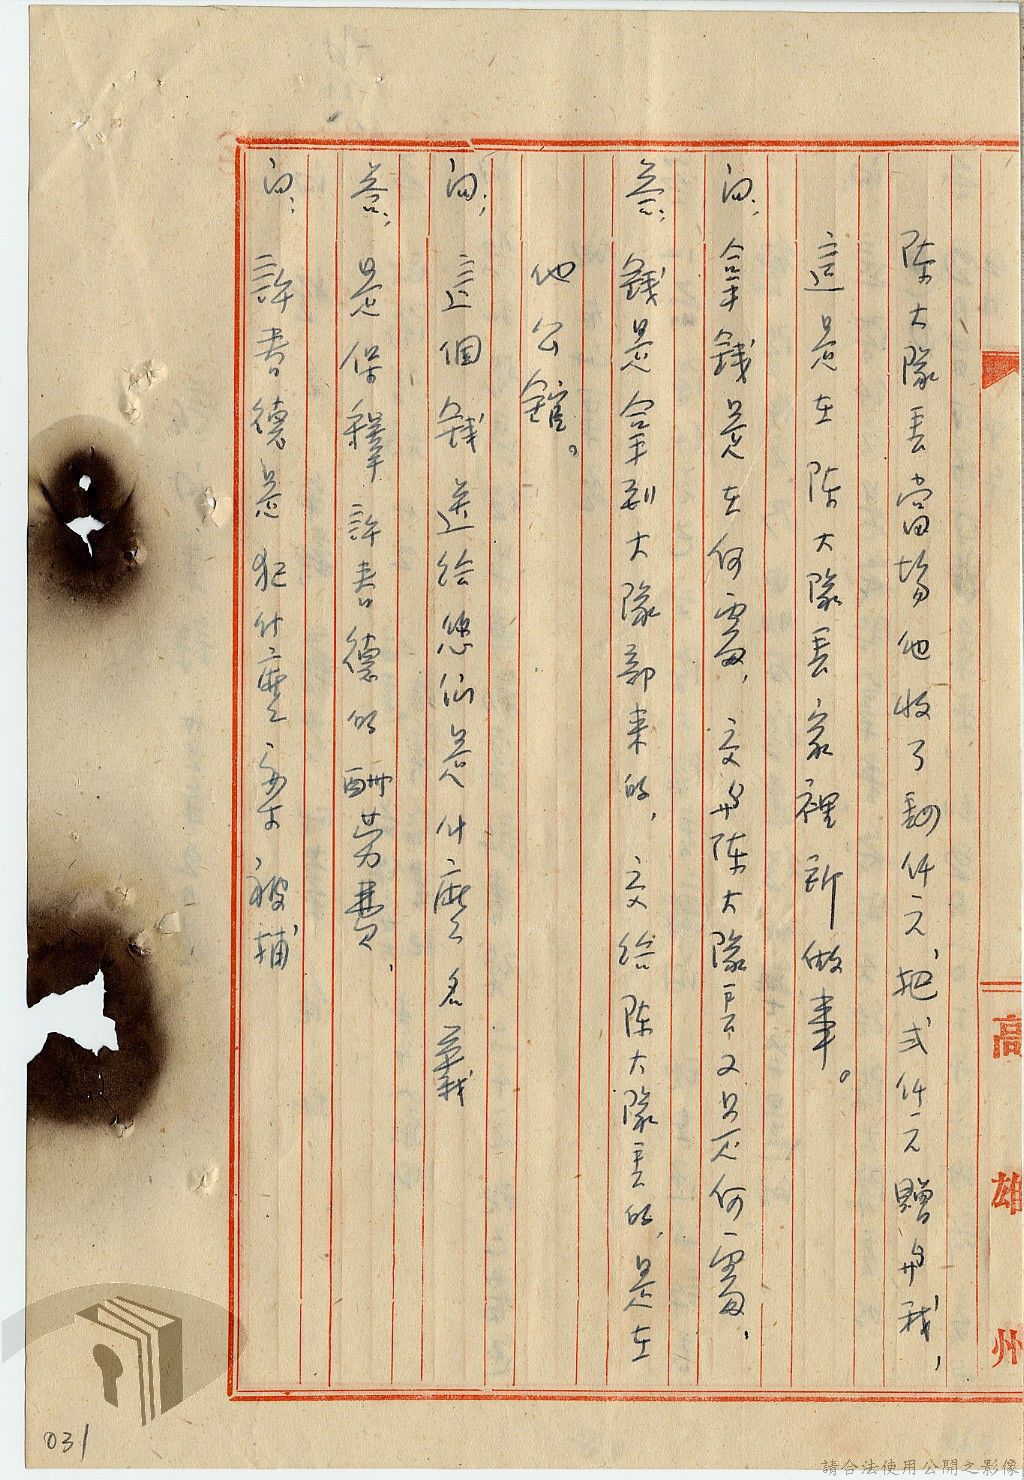 陳大隊長當場他收了制仟元，把弍仟元贈與我，
這是在陳大隊長家裡所做事。
問：拿錢是在何處，交與陳大隊長又是在何處，
答：錢是拿到大隊部來的，交給陳大隊長的，是在
他公館。
問：這個錢送給您們是什麼名義
答：是保釋許書德的酬労費、
問：許書德是犯什麼案被補
高雄州
031
請合法使用公開之影像